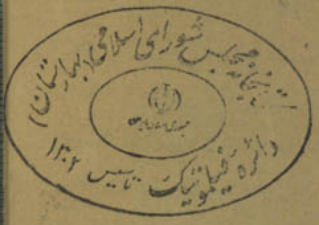 کتابخانه مجلس شورای اسلامی (بهارستان)
جمهوری اسلامی ایران
دائره تاسیس ۱۳۰۲